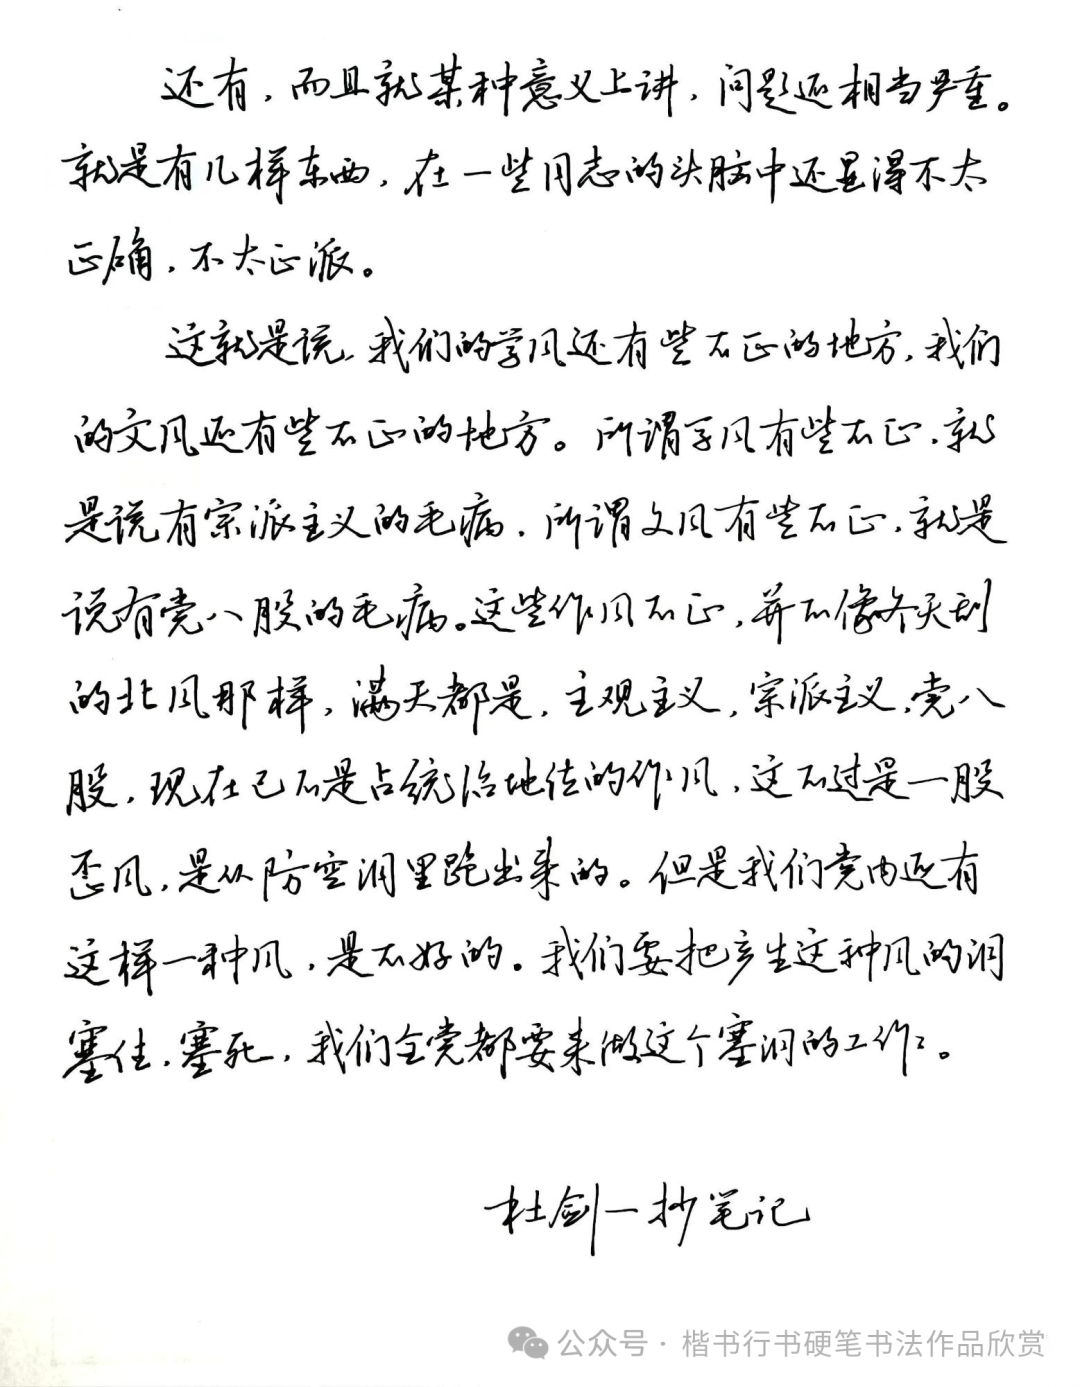 还有，而且就某种意义上讲，问题还相当严重。
就是有几样东西，在一些同志的头脑中还显得不太
正确，不太正派。
这就是说，我们的学风还有些不正的地方，我们
的文风还有些不正的地方。所谓学风有些不正，就
是说有宗派主义的毛病，所谓文风有些不正，就是
说有党八股的毛病。这些作风不正，并不像冬天刮
的北风那样，满天都是，主观主义，宗派主义，党八
股，现在已不是占统治地位的作风，这不过是一股
歪风，是从防空洞里跑出来的。但是我们党内还有
这样一种风，是不好的。我们要把产生这种风的洞
塞住，塞死，我们全党都要来做这个塞洞的工作。
杜剑一抄笔记
公众号·楷书行书硬笔书法作品欣赏